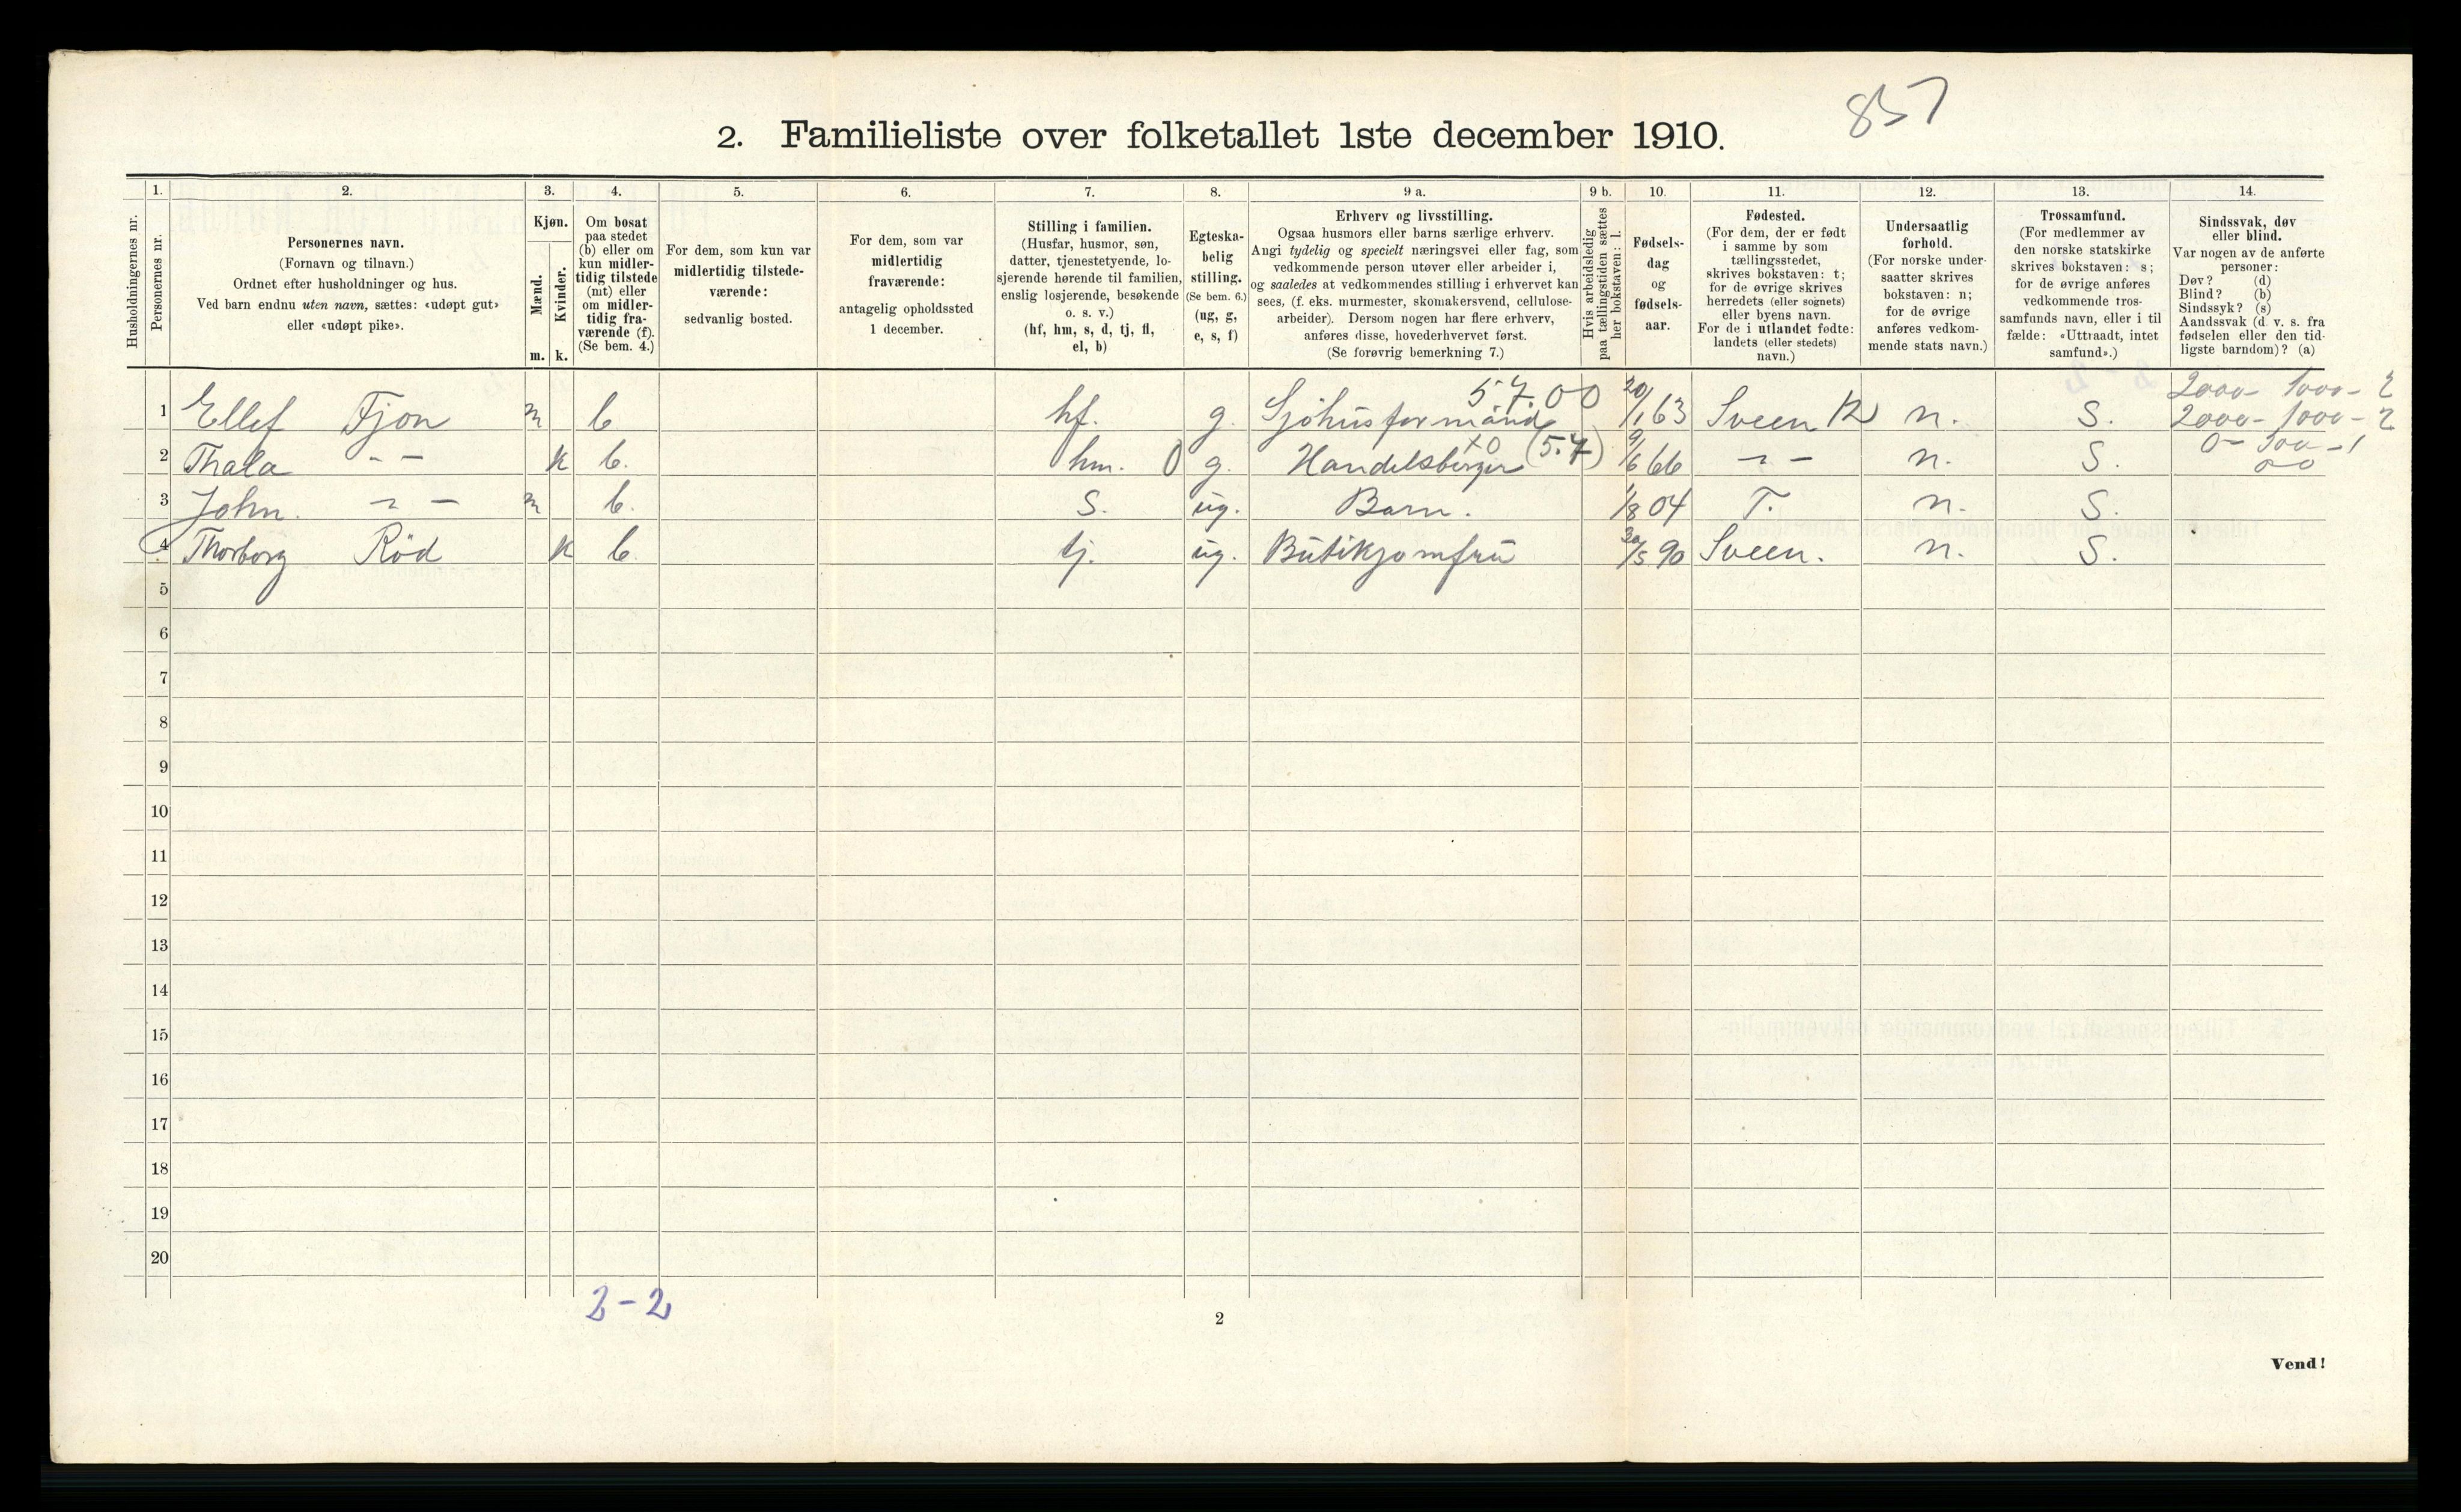 857
2. Familieliste over folketallet 1ste december 1910.
1. 2. 3. 4. 5. 6. 7. 8. 9 a. 9 b. 10. 11. 12. 13. 14.
Husholdningernes nr.
Personernes nr.
Personernes navn.
(Fornavn og tilnavn.)
Ordnet efter husholdninger og hus.
Ved barn endnu uten navn, sættes: «udøpt gut»
eller «udøpt pike».
Kjøn.
Mænd.
Kvinder.
m. k.
Om bosat
paa stedet
(b) eller om
kun midler-
tidig tilstede
(mt) eller
om midler-
tidig fra-
værende (f).
(Se bem. 4.)
For dem, som kun var
midlertidig tilstede-
værende:
sedvanlig bosted.
For dem, som var
midlertidig
fraværende:
antagelig opholdssted
1 december.
Stilling i familien.
(Husfar, husmor, søn,
datter, tjenestetyende, lo-
sjerende hørende til familien,
enslig losjerende, besøkende
o. s. v.)
(hf, hm, s, d, tj, fl,
el, b)
Egteska-
belig
stilling.
(Se bem. 6.)
(ug, g,
e, s, f)
Erhverv og livsstilling.
Ogsaa husmors eller barns særlige erhverv.
Angi tydelig og specielt næringsvei eller fag, som
vedkommende person utøver eller arbeider i,
og saaledes at vedkommendes stilling i erhvervet kan
sees, (f. eks. murmester, skomakersvend, cellulose-
arbeider). Dersom nogen har flere erhverv,
anføres disse, hovederhvervet først.
(Se forøvrig bemerkning 7.)
Hvis arbeidsledig
paa tællingstiden sættes
her bokstaven: l.
Fødsels-
dag
og
fødsels-
aar.
Fødested.
(For dem, der er født
i samme by som
tællingsstedet,
skrives bokstaven: t;
for de øvrige skrives
herredets (eller sognets)
eller byens navn.
For de i utlandet fødte:
landets (eller stedets)
navn.)
Undersaatlig
forhold.
(For norske under-
saatter skrives
bokstaven: n;
for de øvrige
anføres vedkom-
mende stats navn.)
Trossamfund.
(For medlemmer av
den norske statskirke
skrives bokstaven: s;
for de øvrige anføres
vedkommende tros-
samfunds navn, eller i til
fælde: «Uttraadt, intet
samfund».)
Sindssvak, døv
eller blind.
Var nogen av de anførte
personer:
Døv? (d)
Blind? (b)
Sindssyk? (s)
Aandssvak (d. v. s. fra
fødselen eller den tid-
ligste barndom)? (a)
57.00 2000- 1000- 2
1 Ellef Fjon m b. hf. g. Sjöhusformand 20/1 63 Sveen n. S. 2000- 1000- 2
x0 (57) 0- 300 -1
2 Thala - - k b. hm. 0 g. Handelsberger 9/6 66 - - n. S. 00
3 John. - - m b. S. ug. Barn. 1/8 04 T. n. S.
4 Thorborg Röd k b. tj. ug. Butikjomfru 30/5 90 Sveen. n. S.
5
6
7
8
9
10
11
12
13
14
15
16
17
18
19
20
2-2
2
Vend!